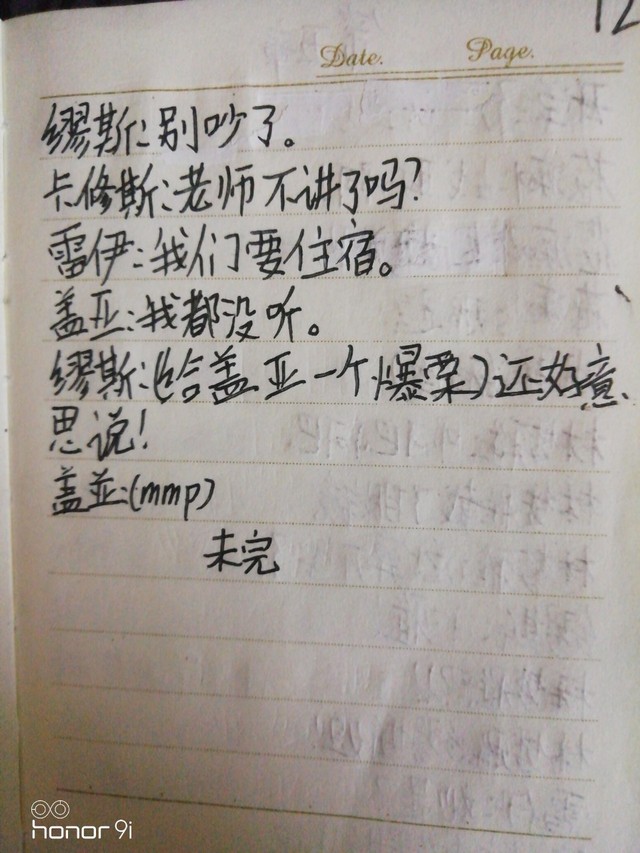 12
Date. Page.
缪斯:别吵了。
卡修斯:老师不讲了吗?
雷伊:我们要住宿。
盖亚:我都没听。
缪斯:(给盖亚一个爆栗)还好意
思说!
盖亚:(mmp)
未完
honor 9i